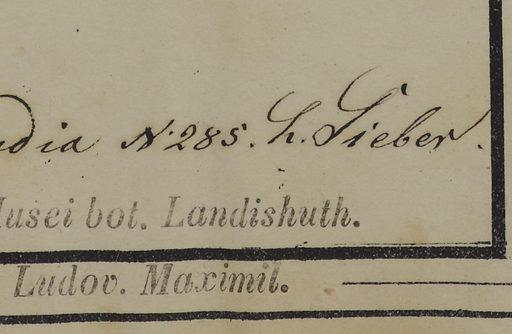 dia N. 285. h. Sieber.
Musei bot. Landishuth.
Ludov. Maximil.